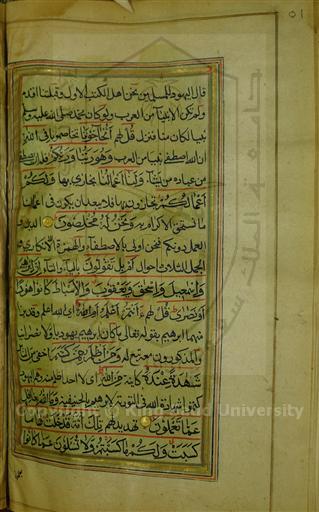 ٥١
قال اليهود للمسلمين نحن اهل الكتب الاول وقبلتنا اقدم
ولم تكن الانبياء من العرب ولو كان محمد صلى الله عليه وسلم
نبيا لكان منا فنزل قل لهم أتحاجوننا تخاصموننا في الله
ان الله اصطفى نبيا من العرب وهو ربنا وربكم فله ان يصطفى
من عباده من يشاء ولنا اعمالنا نجازى بها ولكم
اعمالكم تجازون بها فلا يبعد ان يكون في اعمالنا
ما نستحق الاكرام به ونحن له مخلصون الدين و
العمل دونكم فنحن اولى بالاصطفاء والهمزة للانكار و
الجمل الثلاث احوال ام بل تقولون بالتاء والياء ان ابراهيم
واسمعيل واسحق ويعقوب والاسباط كانوا هودا
او نصرى قل لهم ءانتم اعلم ام الله اى الله اعلم وقد برأ
منهما ابرهيم بقوله تعالى ما كان ابرهيم يهوديا ولا نصرانيا
والمذكورون معه تبع له ومن اظلم ممن كتم اخفى من الناس
شهدة عنده كاينة من الله اى لا احد اظلم منه وهم اليهود
كتموا شهادة الله في التورية لابرهيم بالحنيفية وما الله بغافل
عما تعملون تهديد لهم تلك امة قد خلت لها ما
كسبت ولكم ما كسبتم ولا تسئلون عما كانوا
Copyright © King Saud University
جامعة الملك سعود